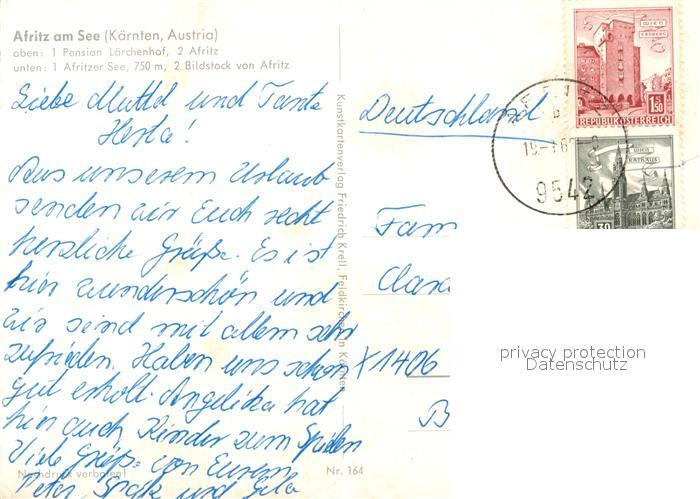 Afritz am See (Kärnten, Austria)
oben: 1 Pension Lärchenhof, 2 Afritz
unten: 1 Afritzer See, 750 m, 2 Bildstock von Afritz
Liebe Muttel und Tante
Herta!
Aus unserem Urlaub
senden wir Euch recht
herzliche Grüße. Es ist
hier wunderschön und
wir sind mit allem sehr
zufrieden. Haben uns schon
gut erholt. Angelika hat
hier auch Kinder zum Spielen
Viele Grüße von Eurem
Peter, und
Nachdruck verboten!
Nr. 164
Kunstkartenverlag Friedrich Krell, Feldkirchen in Kärnten
Deutschland
Fam
Clara
X 1406
B
WIEN
ERDBERG
1.50
REPUBLIK ÖSTERREICH
WIEN
RATHAUS
30
9542
privacy protection
Datenschutz